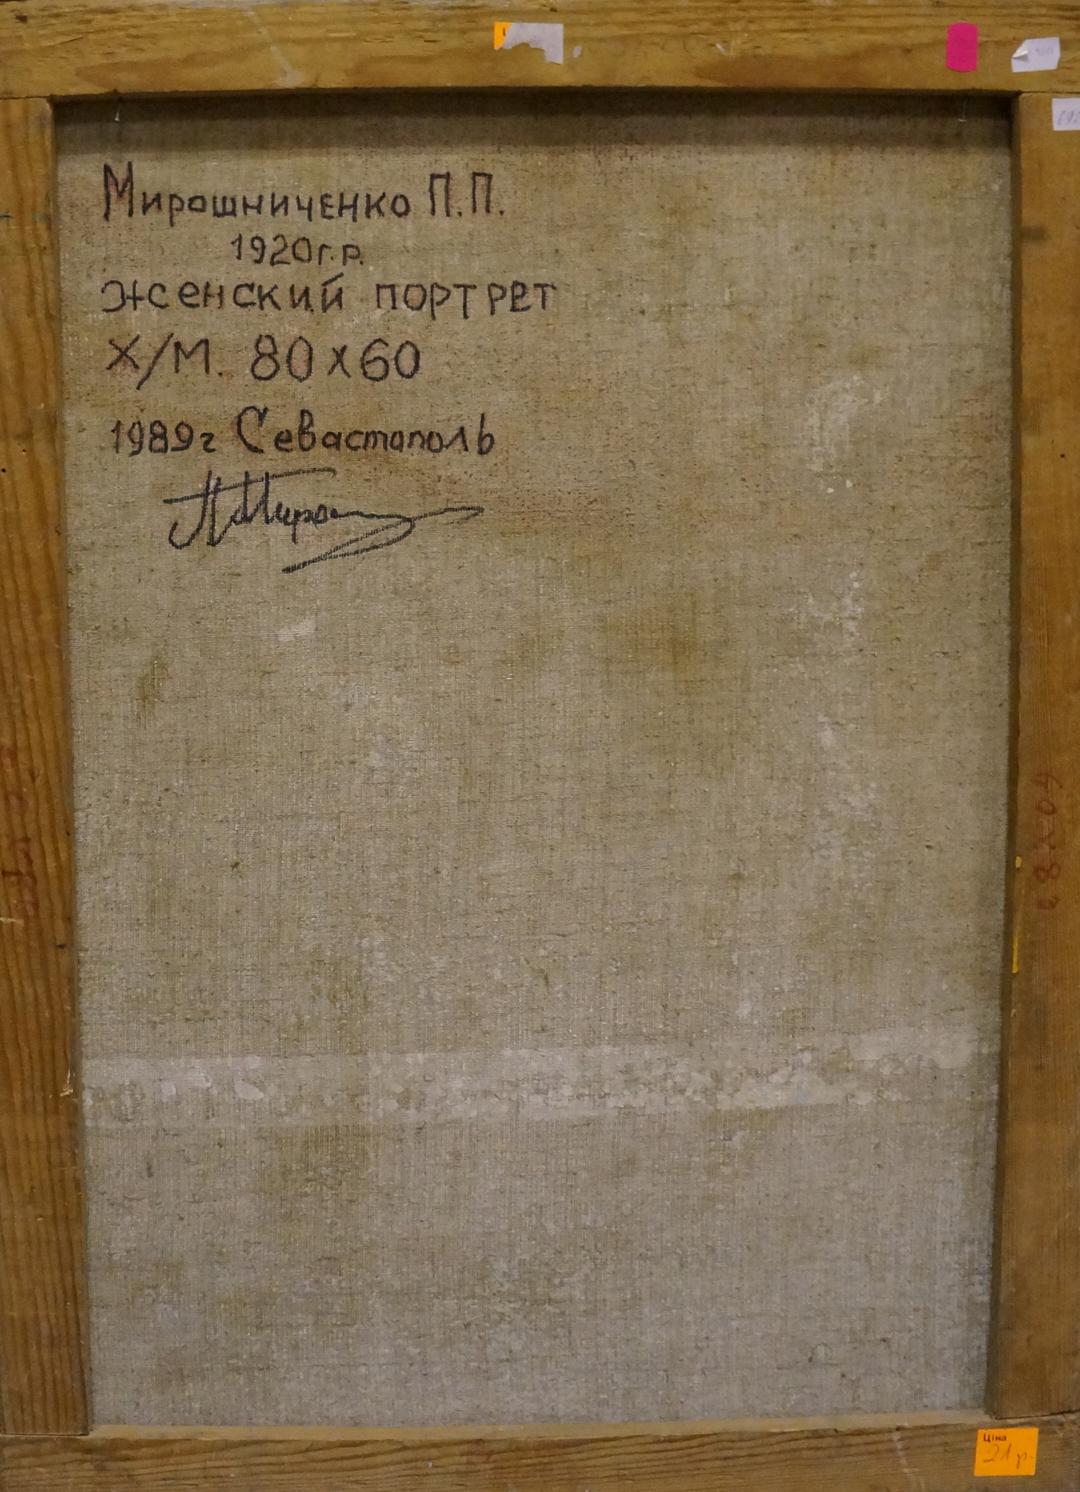 Мирошниченко П.П.
1920г.р.
женский портрет
Х/М. 80х60
1989г Севастополь
Ціна
21 р.